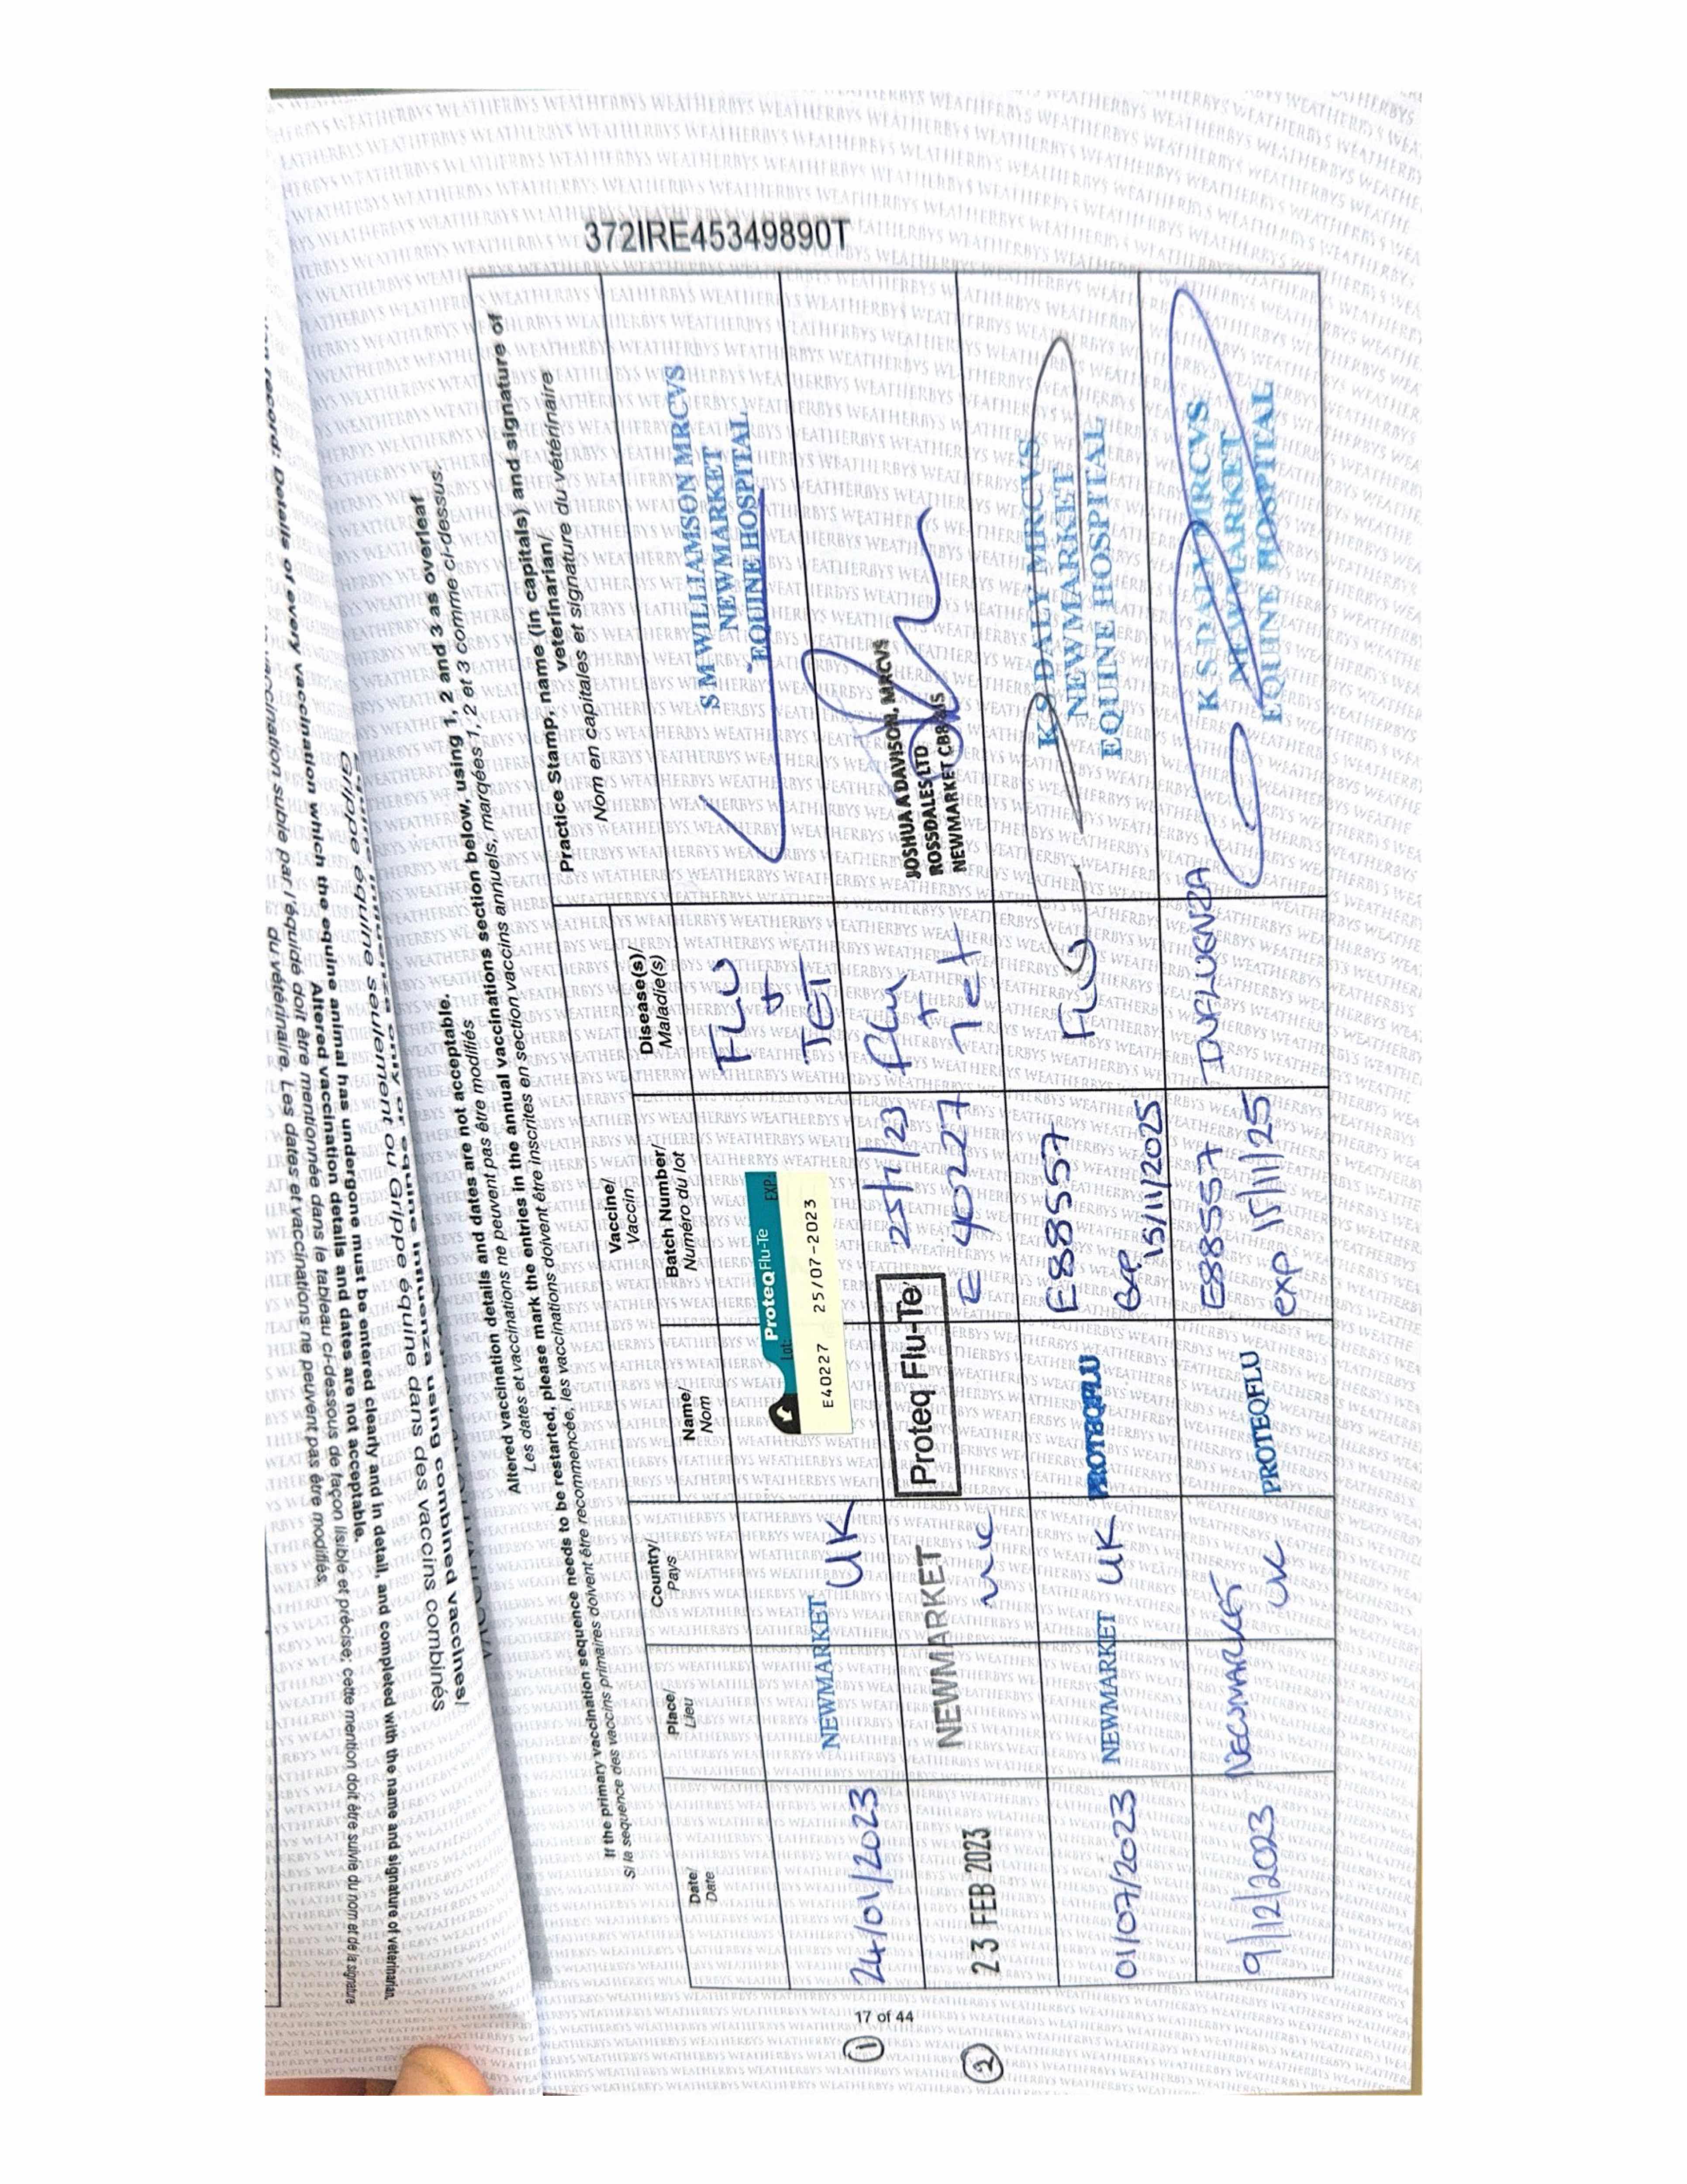 372IRE45349890T
Grippe équine seulement ou Grippe équine dans des vaccins combinés
du vétérinaire. Les dates et vaccinations ne peuvent pas être modifiés.
record: Details of every vaccination which the equine animal has undergone must be entered clearly and in detail, and completed with the name and signature of veterinarian.
Altered vaccination details and dates are not acceptable.
vaccination subie par l'équidé doit être mentionnée dans le tableau ci-dessous de façon lisible et précise; cette mention doit être suivie du nom et de la signature
using combined vaccines/
Altered vaccination details and dates are not acceptable.
Les dates et vaccinations ne peuvent pas être modifiés
If the primary vaccination sequence needs to be restarted, please mark the entries in the annual vaccinations section below, using 1, 2 and 3 as overleaf
Si la sequence des vaccins primaires doivent être recommencée, les vaccinations doivent être inscrites en section vaccins annuels, marquées 1, 2 et 3 comme ci-dessus.
Date/
Date
Place/
Lieu
Country/
Pays
Vaccine/
Vaccin
Name/
Nom
Batch Number/
Numéro du lot
Disease(s)/
Maladie(s)
Practice Stamp, name (in capitals) and signature of
veterinarian/
Nom en capitales et signature du vétérinaire
24/01/2023
NEWMARKET
UK
ProteqFlu-Te
Lot:
EXP:
E40227 25/07-2023
FLU
+
TET
S M WILLIAMSON MRCVS
NEWMARKET
EQUINE HOSPITAL
23 FEB 2023
NEWMARKET
UK
Proteq Flu-Te
25/7/23
E40227
Flu
+
Tet
JOSHUA A DAVISON, MRCVS
ROSSDALES LTD
NEWMARKET CB8
01/07/2023
NEWMARKET
UK
PROTEQFLU
E88557
exp. 15/11/2025
FLU
K S DALY MRCVS
NEWMARKET
EQUINE HOSPITAL
9/12/2023
NEWMARKET
UK
PROTEQFLU
E88557
exp 15/11/25
INFLUENZA
K S DALY MRCVS
NEWMARKET
EQUINE HOSPITAL
17 of 44
1
2